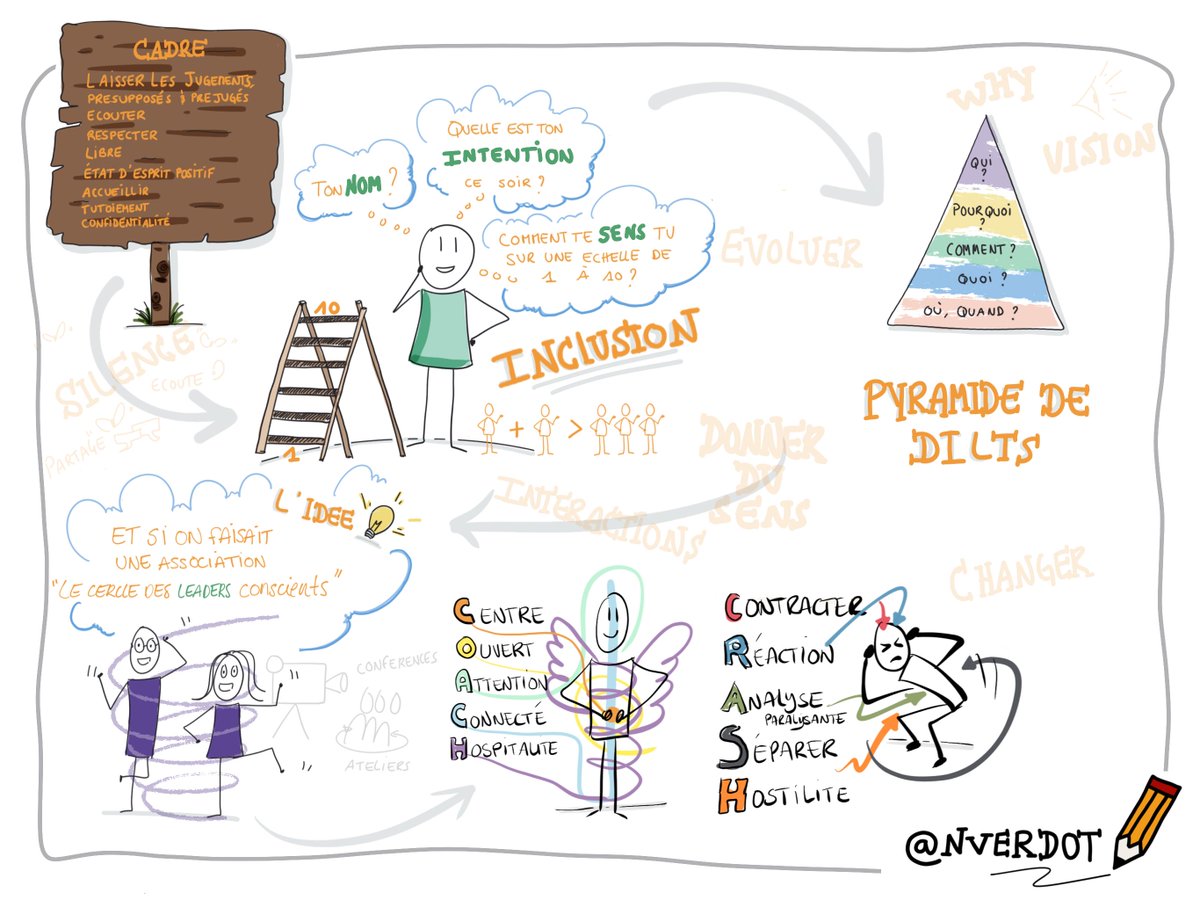 CADRE
LAISSER LES JUGEMENTS,
PRESUPPOSÉS & PREJUGÉS
ECOUTER
RESPECTER
LIBRE
ÉTAT D'ESPRIT POSITIF
ACCUEILLIR
TUTOIEMENT
CONFIDENTIALITÉ
TON NOM ?
QUELLE EST TON
INTENTION
CE SOIR ?
COMMENT TE SENS TU
SUR UNE ECHELLE DE
1 À 10 ?
10
1
INCLUSION
+ >
SILENCE
ECOUTE
PARTAGE
EVOLUER
WHY
VISION
QUI
?
POURQUOI
?
COMMENT ?
QUOI ?
OÙ, QUAND ?
PYRAMIDE DE
DILTS
DONNER
DU
SENS
INTERACTIONS
CHANGER
L'IDEE
ET SI ON FAISAIT
UNE ASSOCIATION
"LE CERCLE DES LEADERS CONSCIENTS"
CONFERENCES
ATELIERS
CENTRE
OUVERT
ATTENTION
CONNECTÉ
HOSPITALITE
CONTRACTER
RÉACTION
ANALYSE
PARALYSANTE
SÉPARER
HOSTILITE
@NVERDOT